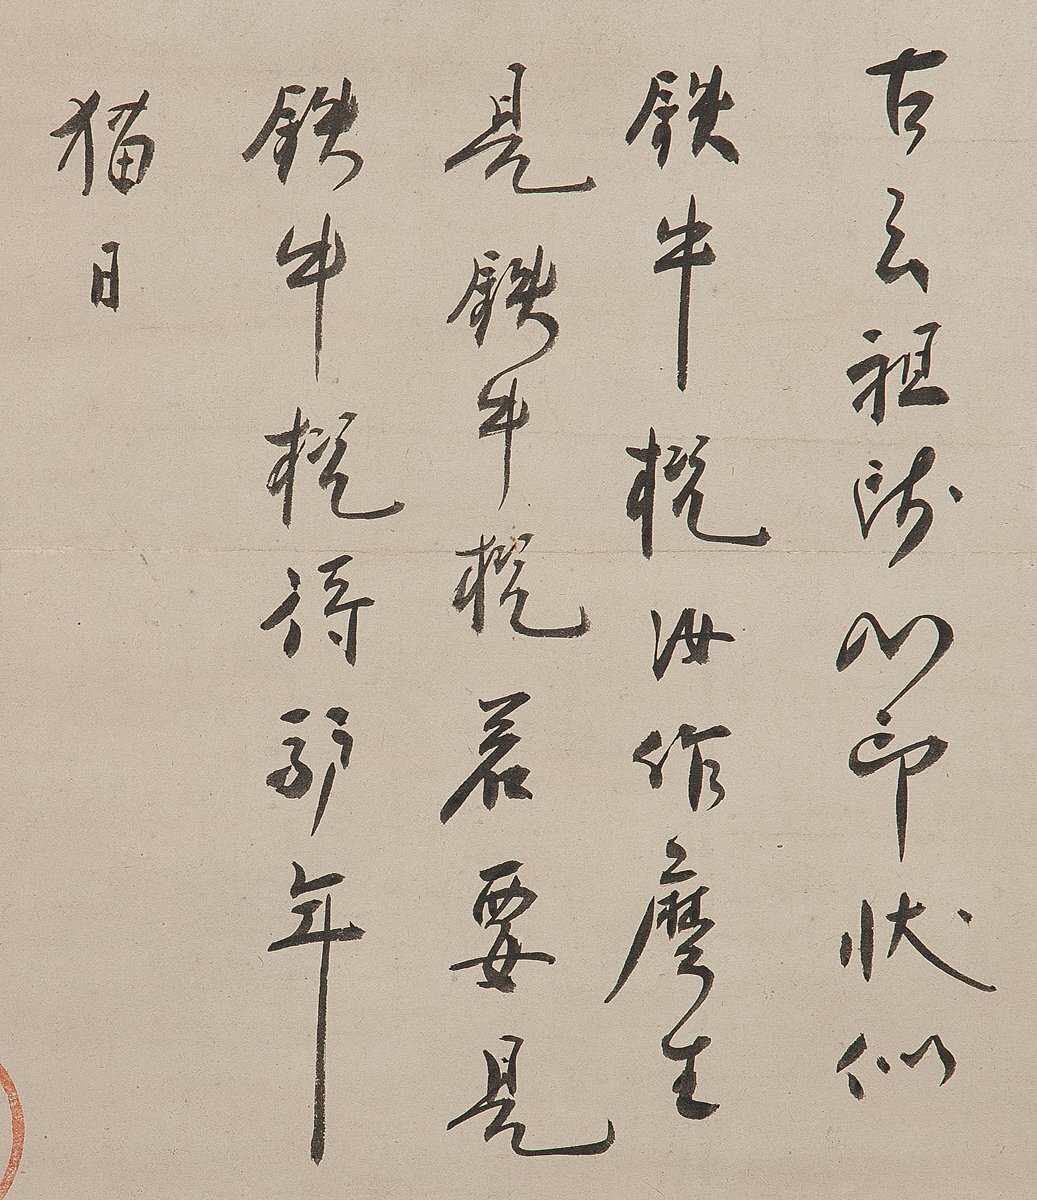 古云祖師心印状似
鉄牛機汝作麼生
見鉄牛機若要見
鉄牛機待驢年
猫日